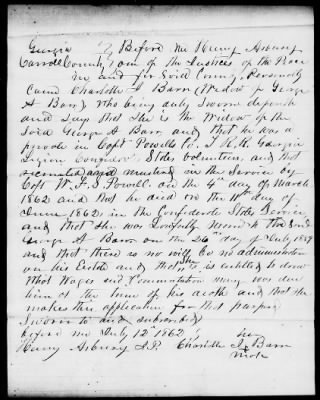 Georgia } Before me Henry Asbury
Carroll County } one of the Justices of the Peace
in and for Said County, Personally
Came Charlotte J Barr (Widow of George
A Barr) Who being duly Sworn deposeth
and Says that She is the Widow of the
Said George A Barr and that he was a
private in Capt Powells Co. Georgia
Legion Confederate States Volunteers, and that
mustered in the Service by
Capt W. F. S. Powell on the 4th day of March
1862 and that he died on the day of
June 1862 in the Confederate States Service
and that She was Lawfully to the Said
George A Barr on the 26th day of July
and that there is no will no administration
on his Estate and that is entitled to draw
What Wages and Commutation may was due
him at the time of his death and that She
makes this application for that purpose
Sworn to and subscribed
before me July 12th 1862 } her
Henry Asbury J.P. Charlotte J x Barr
mark